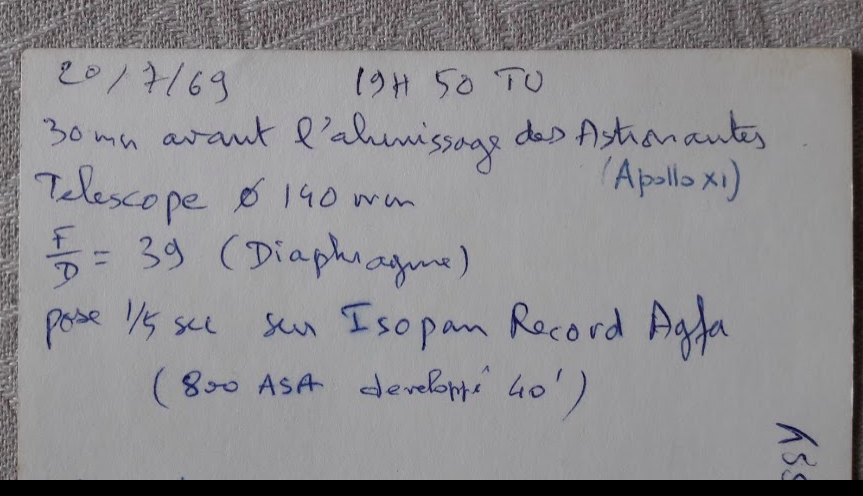 20/7/69 19H 50 TU
30mn avant l'alunissage des Astronautes
(Apollo XI)
Telescope ø 140 mm
F/D = 39 (Diaphragme)
pose 1/5 sec sur Isopan Record Agfa
(800 ASA developpé 40')